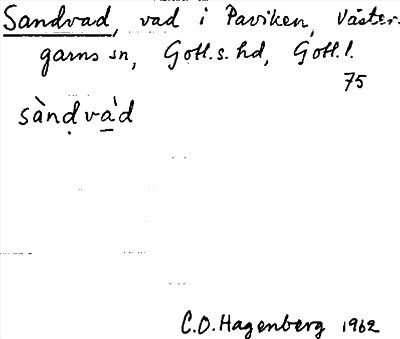 Sandvad, vad i Paviken, Väster-
garns sn, Gotl.s. hd, Gotl. l.
75
sànḍvà̲d
C.O. Hagenberg 1962